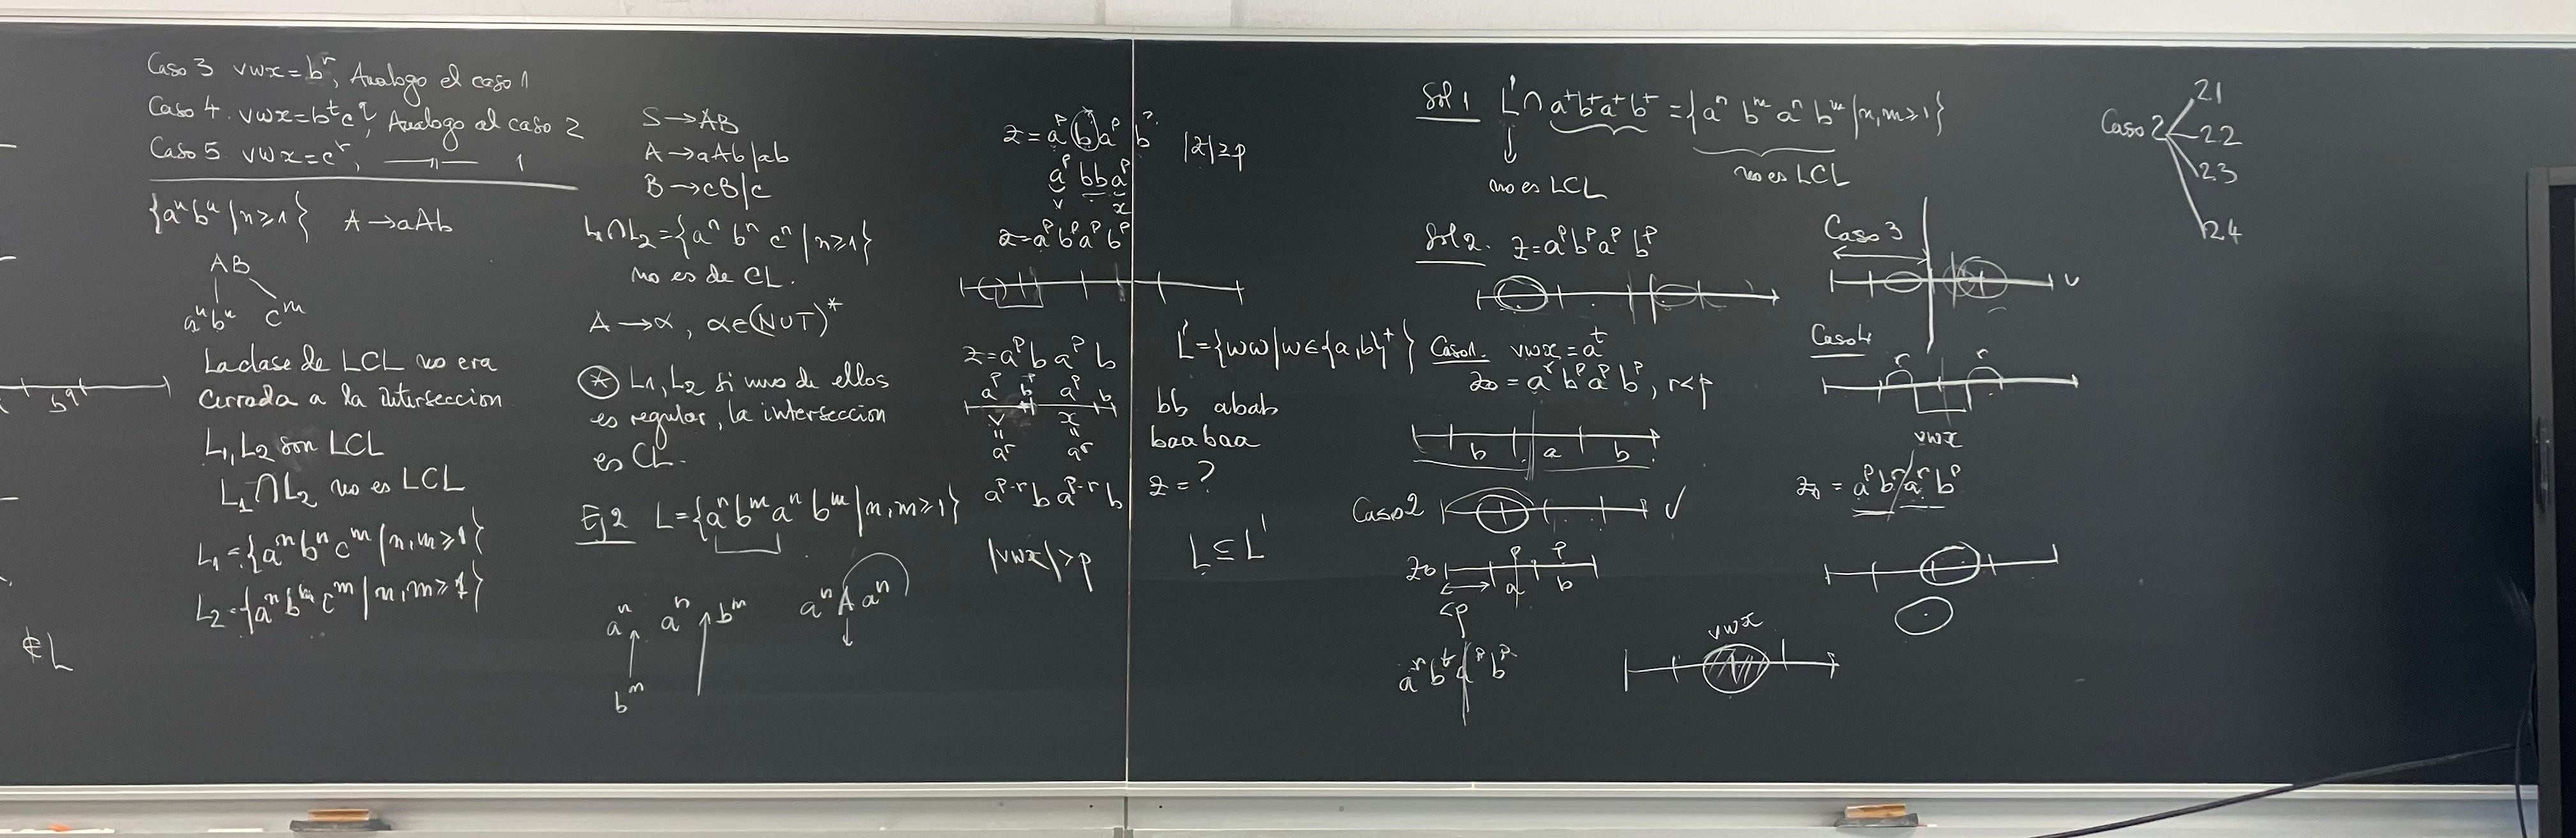 Caso 3 vwx = b^r, Analogo el caso 1
Caso 4. vwx = b^t c^q, Analogo al caso 2
Caso 5 vwx = c^r, —— 〃 —— 1
{a^n b^n | n ≥ 1} A → aAb
AB
a^n b^n c^m
La clase de LCL no era
cerrada a la interseccion
L1, L2 son LCL
L1 ∩ L2 no es LCL
L1 = {a^n b^n c^m | n, m ≥ 1}
L2 = {a^n b^m c^m | n, m ≥ 1}
b^q
∉ L
S → AB
A → aAb | ab
B → cB | c
L1 ∩ L2 = {a^n b^n c^n | n ≥ 1}
no es de CL.
A → α, α ∈ (N ∪ T)^*
* L1, L2 si uno de ellos
es regular, la interseccion
es CL.
Ej 2 L = {a^n b^m a^n b^m | n, m ≥ 1}
a^n a^n b^m
b^m
a^n A a^n
z = a^p b a^p b ?
|z| ≥ p
a^p b b a^p
v x
z = a^p b^p a^p b^p
z = a^p b a^p b
a^p b a^p b
v x
= =
a^r a^r
a^p-r b a^p-r b
|vwx| > p
L' = {ww | w ∈ {a,b}^+}
bb abab
baabaa
z = ?
L ⊆ L'
Sol 1 L' ∩ a^+ b^+ a^+ b^+ = {a^n b^m a^n b^m | n, m ≥ 1}
no es LCL no es LCL
Sol 2. z = a^p b^p a^p b^p
Caso 1. vwx = a^t
z0 = a^r b^p a^p b^p, r < p
b a b
Caso 2 ✓
p p
z0 a b
<p
a^r b^t a^p b^p
vwx
Caso 3
Caso 4
r r
vwx
z0 = a^p b^r / a^r b^p
Caso 2
2.1
2.2
2.3
2.4